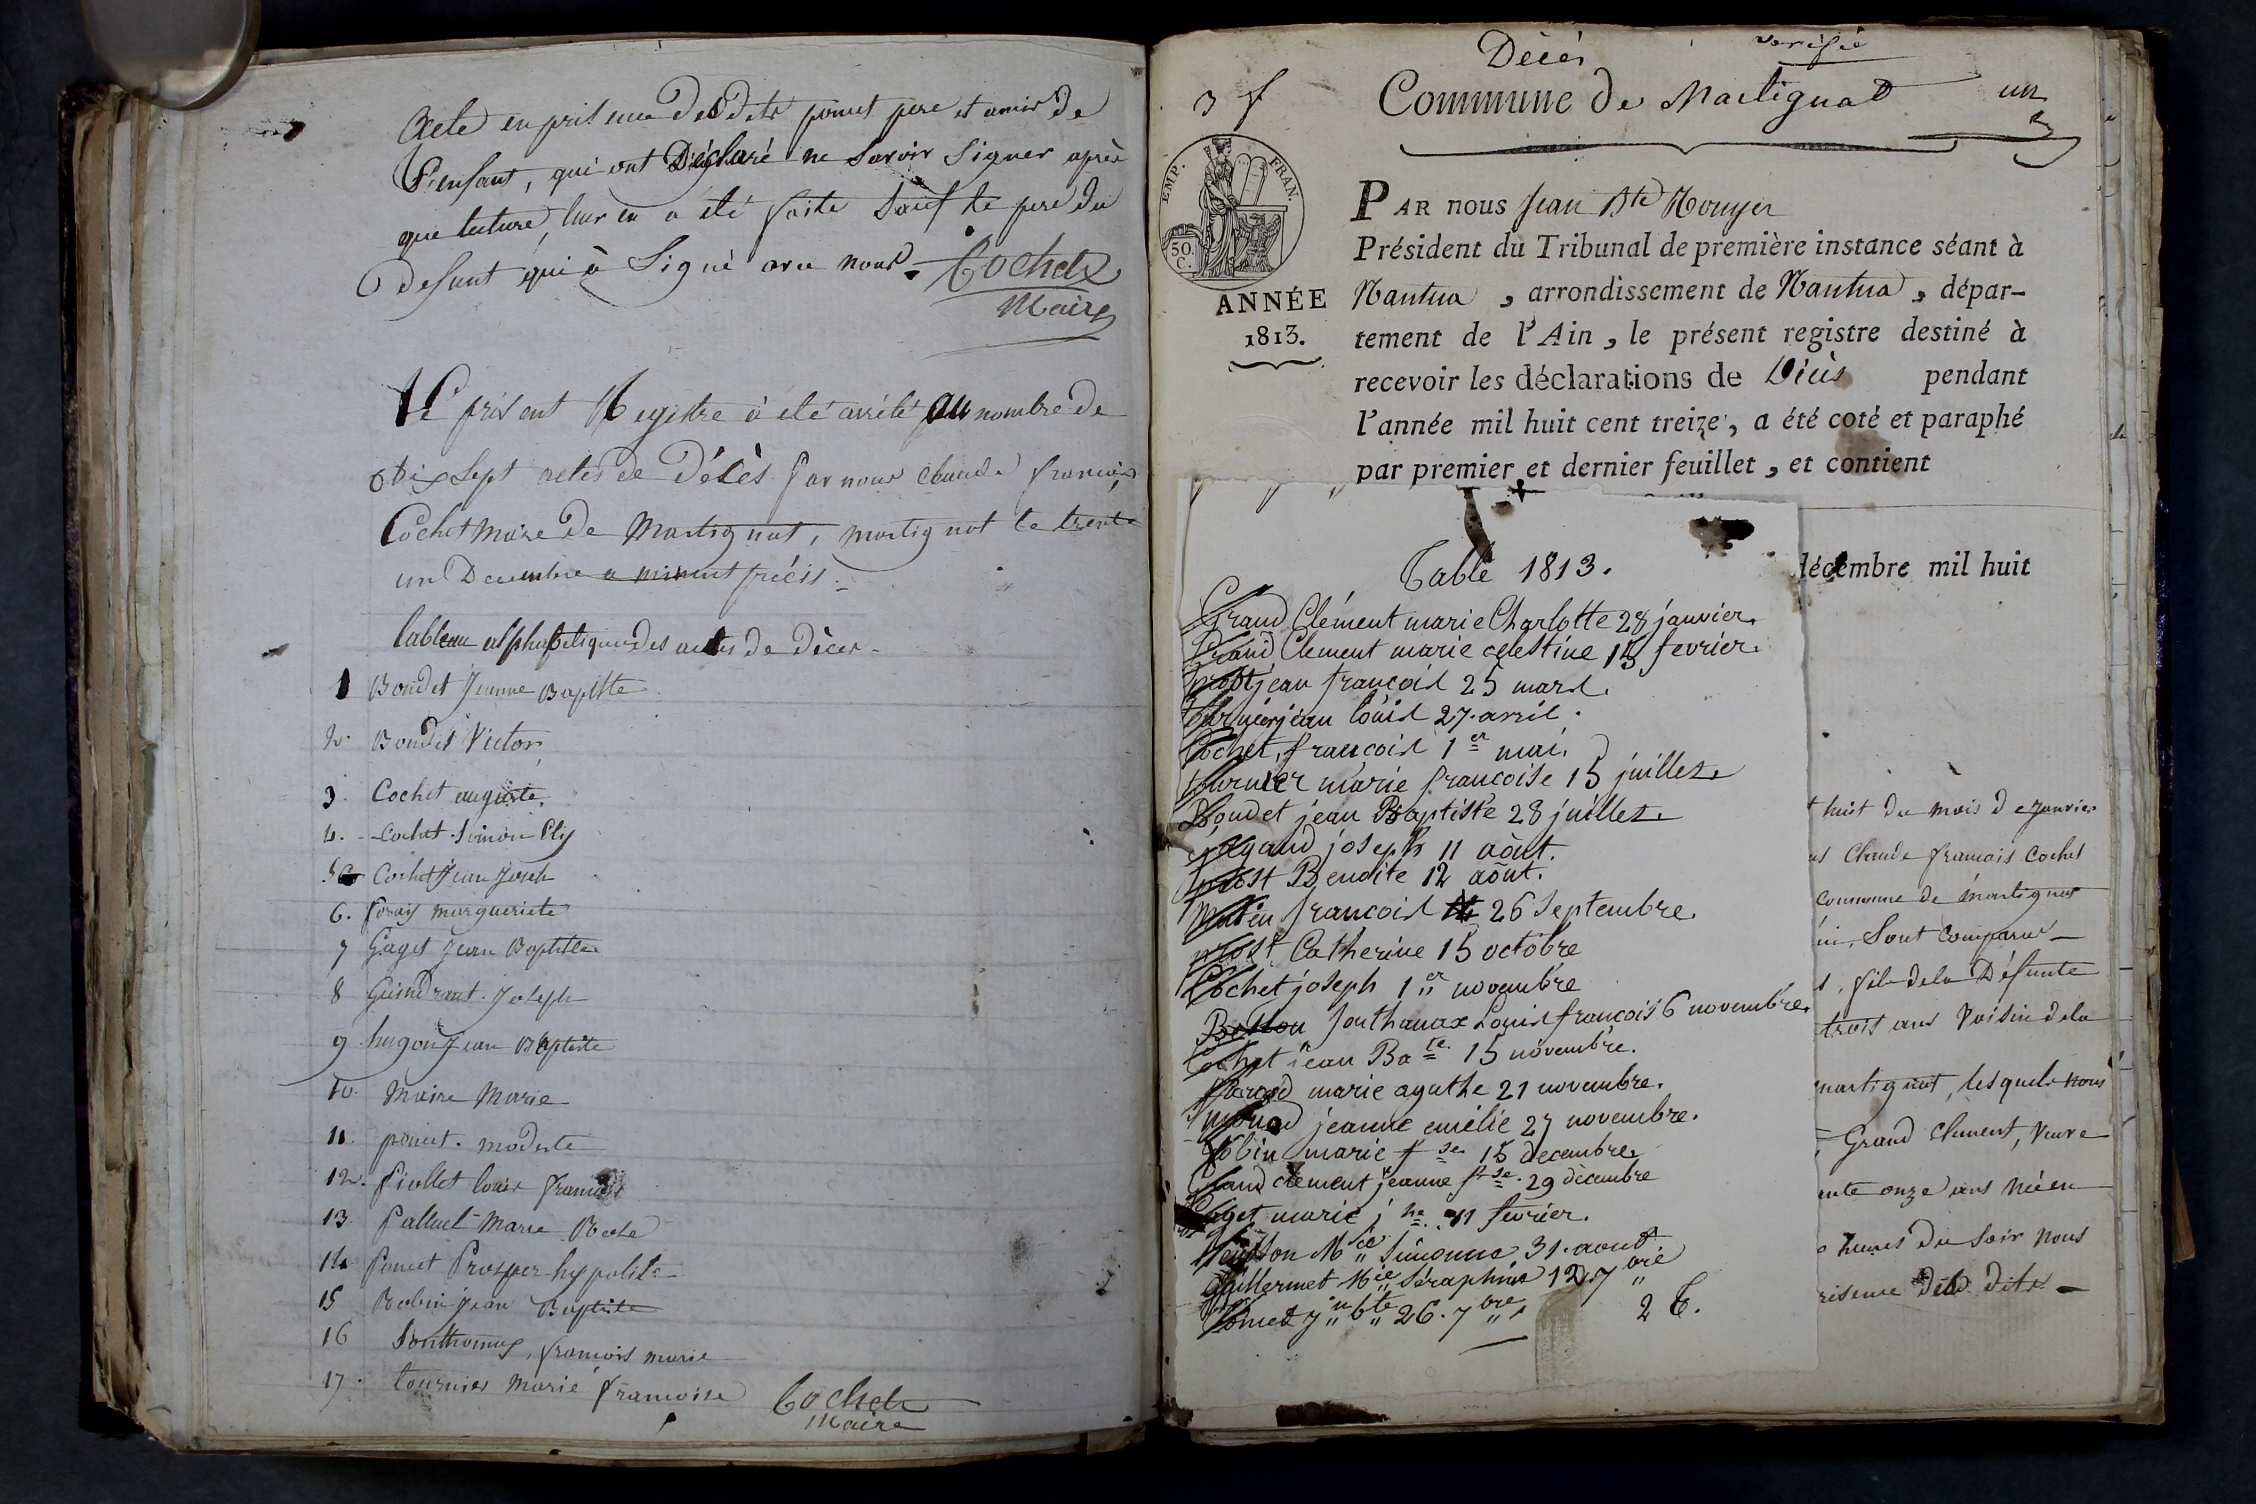 acte en présence desdits poncet pere et amis de
L'enfant, qui ont Déclaré ne Savoir Signer après
que lecture leur en a été faite Sauf le pere du
defunt qui à Signé avec nous. Cochet
Maire
Le présent Registre à été arrété au nombre de
dix Sept actes de Décès par nous claude francois
Cochet maire de Martignat, martignat le trente
un Decembre
tableau alphabetique des actes de Décès
1 Boudet Jeanne Baptiste
2. Boudet Victor
3. Cochet auguste
4. Cochet Simon
5 Cochet Jean Joseph
6. marguerite
7 Gaget Jean Baptiste
8 Guindrant Joseph
9 hugon Jean Baptiste
10. Maire Marie
11. poncet modeste
12. piollet louis francois
13. Marie
14 Poncet Prosper hypolite
15 Robin Jean Baptiste
16 Sonthonnax francois marie
17. tournier Marie francoise Cochet
Maire
Décès verifié
3 f Commune de Martignat un
EMP. FRAN.
50 C.
ANNÉE
1813.
PAR nous Jean Bte Rouyer
Président du Tribunal de première instance séant à
Nantua, arrondissement de Nantua, dépar-
tement de l'Ain, le présent registre destiné à
recevoir les déclarations de Décès pendant
l'année mil huit cent treize, a été coté et paraphé
par premier et dernier feuillet, et contient
décembre mil huit
Table 1813.
Grand Clément marie Charlotte 28 janvier.
Grand Clement marie celestine 15 fevrier.
prost jean françois 25 mars.
tournier jean louis 27 avril.
Cochet françois 1er mai.
tournier marie francoise 15 juillet.
Boudet jean Baptiste 28 juillet.
joseph 11 août.
prost Benoite 12 août.
françois 26 Septembre.
prost Catherine 15 octobre
Cochet joseph 1er novembre
Sonthanax Louis françois 6 novembre.
Cochet jean Bate 15 novembre.
marie agathe 21 novembre.
jeanne emélie 27 novembre.
Robin marie fse 15 decembre.
Grand clement jeanne fse. 29 décembre
Gaget marie jne 11 fevrier.
Simonne 31. aout
Guillermet Mie Séraphine 12. 7bre
Poncet jn bte 26. 7bre. 2 t.
t huit du mois de Janvier
Claude francois Cochet
commune de martignat
Sont comparus
fils de la Défunte
trois ans Voisin de la
martignat, lesquels nous
Grand clement, Veuve
ente onze ans Née en
heures du Soir nous
résence desd. dits